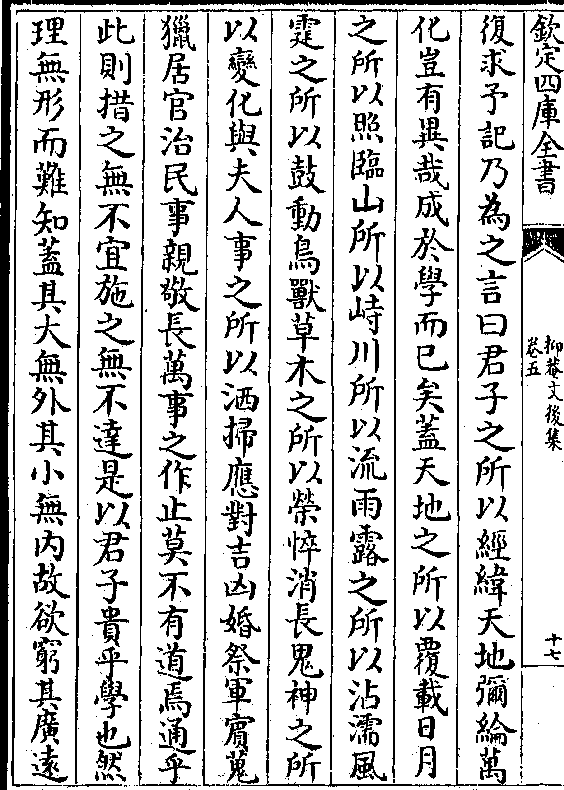 欽定四庫全書
抑菴文後集
卷五
十七
復求予記乃為之言曰君子之所以經緯天地彌綸萬
化豈有異哉成於學而已矣蓋天地之所以覆載日月
之所以照臨山所以峙川所以流雨露之所以沾濡風
霆之所以鼓動鳥獸草木之所以榮悴消長鬼神之所
以變化與夫人事之所以洒掃應對吉凶婚祭軍賓蒐
獵居官治民事親敬長萬事之作止莫不有道焉通乎
此則措之無不宜施之無不達是以君子貴乎學也然
理無形而難知蓋其大無外其小無內故欲窮其廣遠